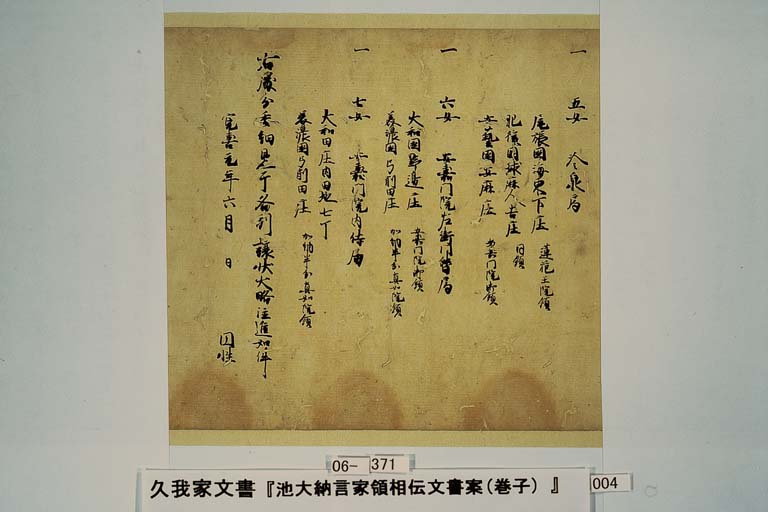 一 五女 冷泉局
尾張国海東下庄 蓮花王院領
肥後国球麻人吉庄 同領
安藝国安麻庄 安嘉門院御領
一 六女 安嘉門院左衛門督局
大和国野邊庄 安嘉門院御領
美濃国弓削田庄 加納半分真如院領
一 七女 安嘉門院内侍局
大和田庄内田地七丁
美濃國弓削田庄 加納半分真如院領
右處分委細見于各別譲状大略注進如件
寛喜元年六月 日
06-371
久我家文書『池大納言家領相伝文書案(巻子)』
004